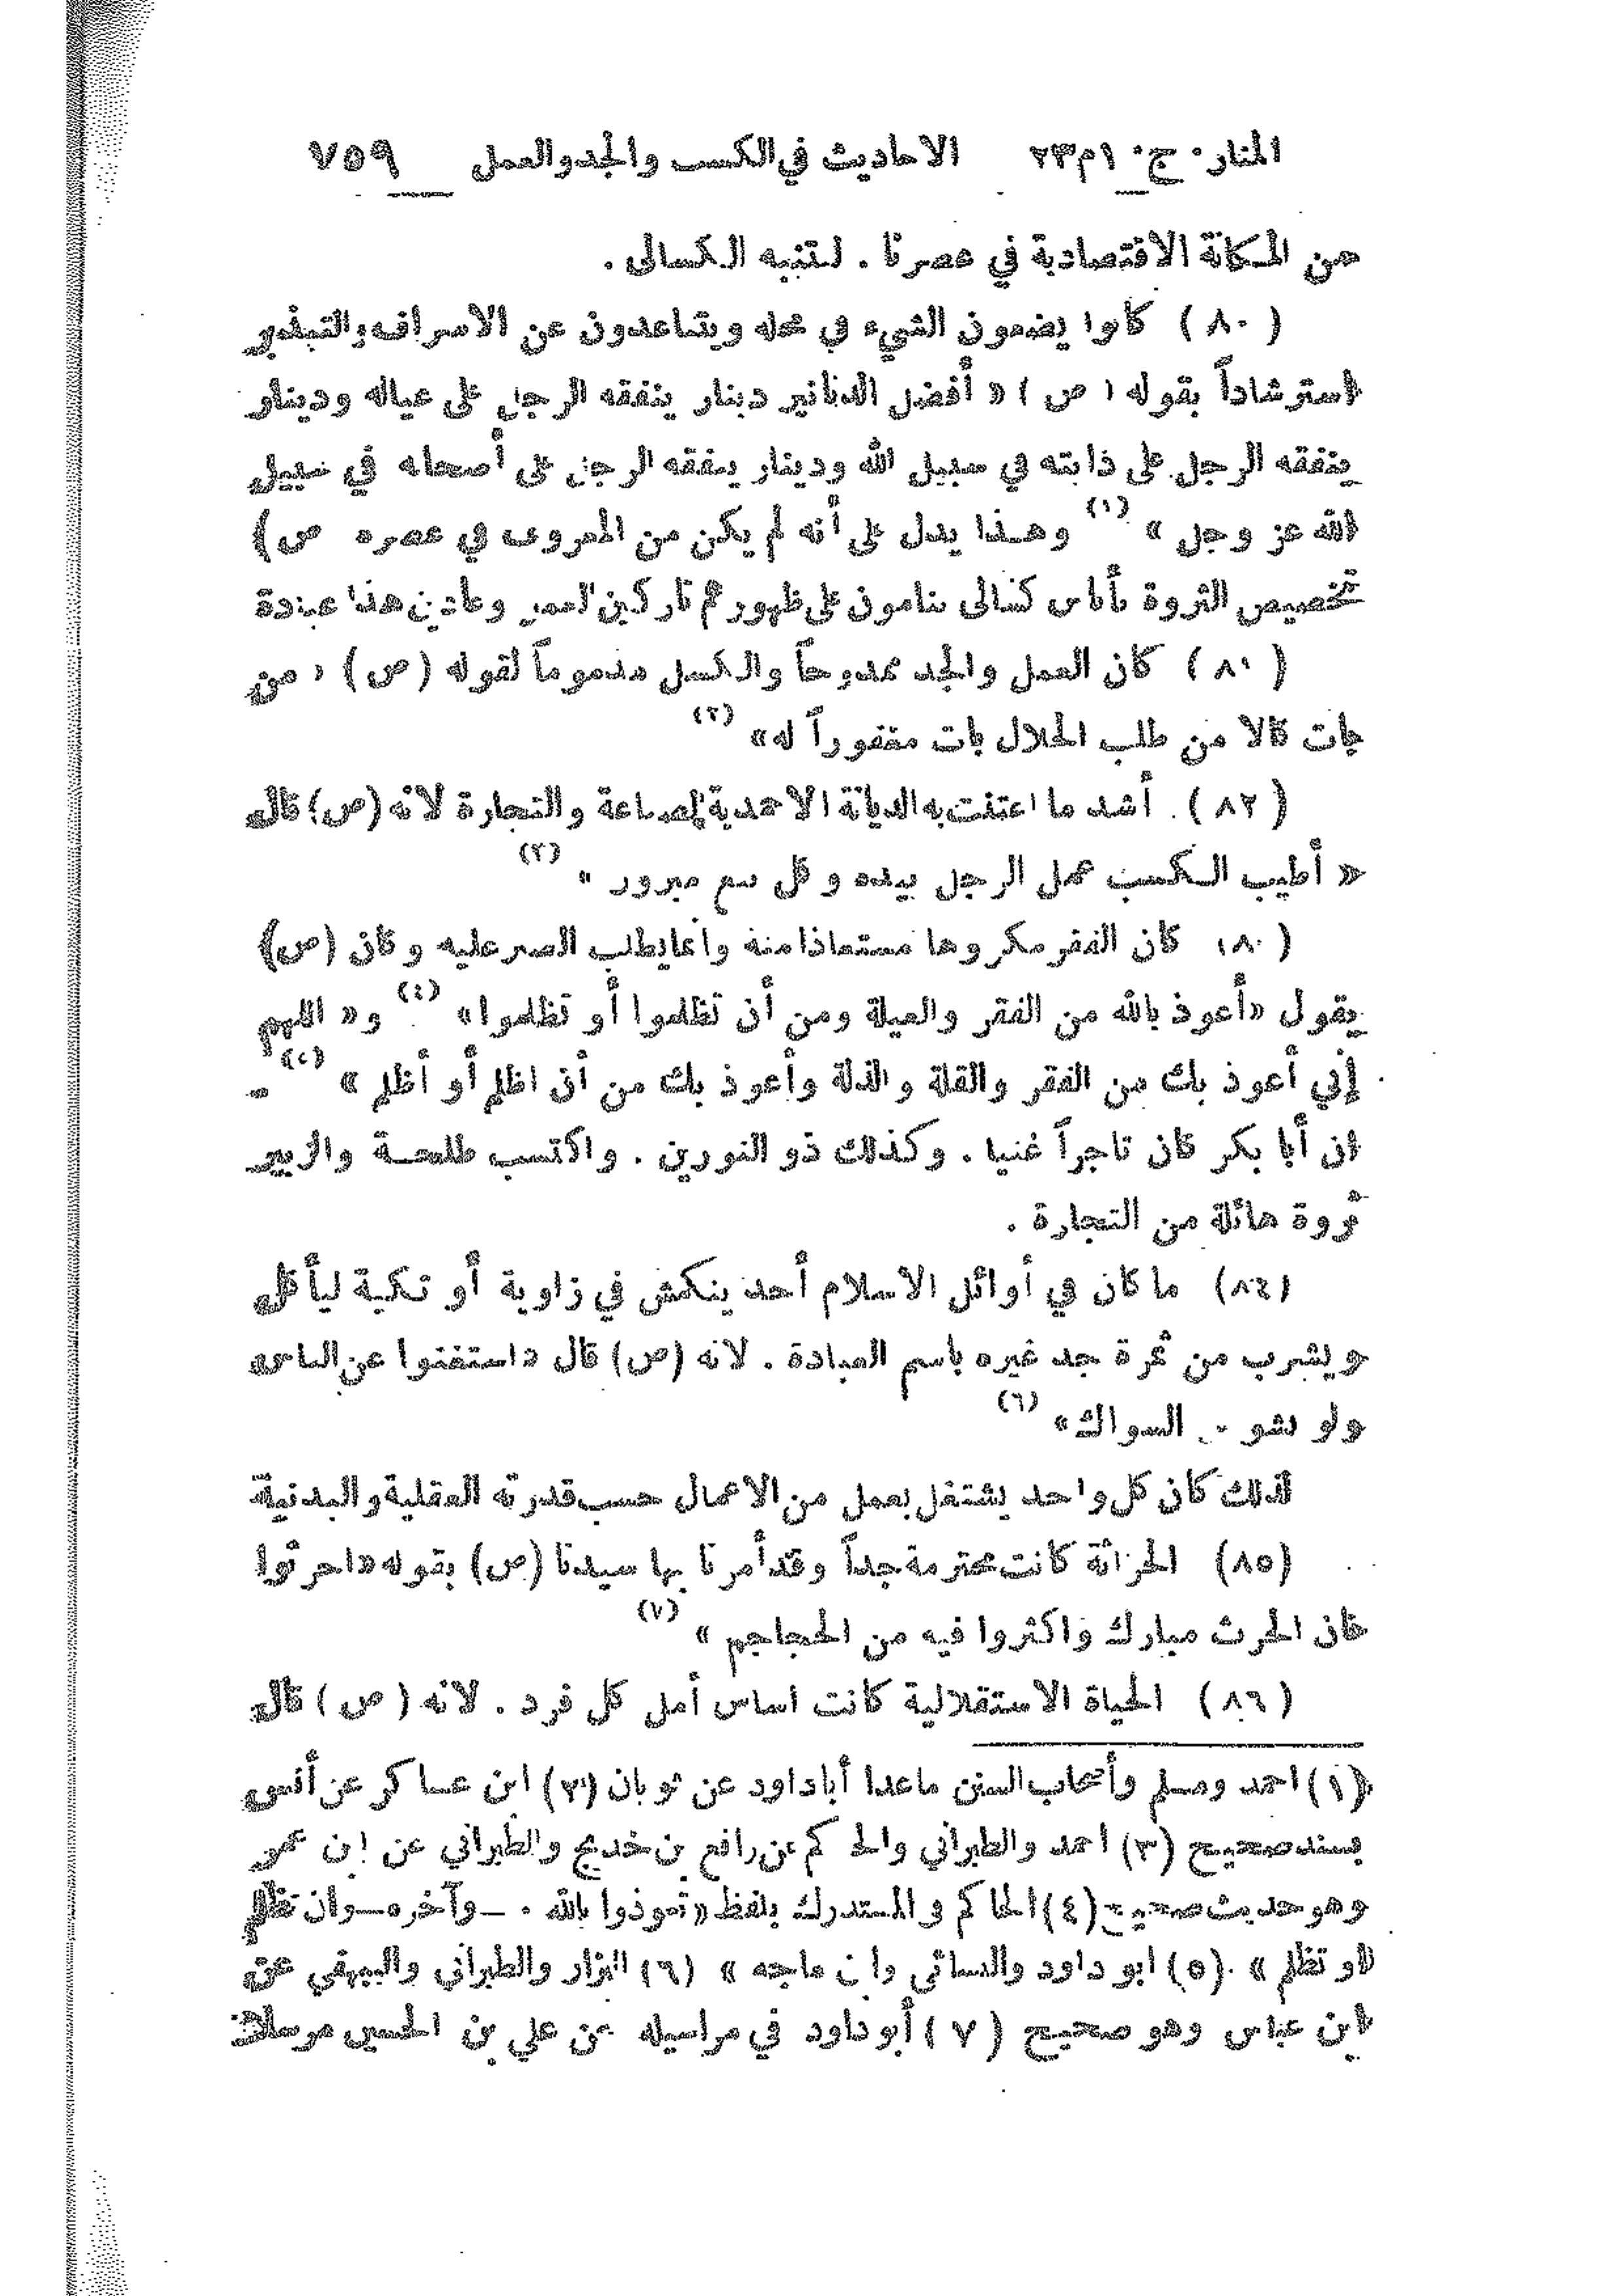 المنار: ج ١٠ م ٢٣ الاحاديث في الكسب والجد والعمل ٧٥٩
من المكانة الاقتصادية في عصرنا . لتنبه الكسالى .
( ٨٠ ) كانوا يضعون الشيء في محله ويتباعدون عن الاسراف والتبذير
استرشاداً بقوله ( ص ) « أفضل الدنانير دينار ينفقه الرجل على عياله ودينار
ينفقه الرجل على دابته في سبيل الله ودينار ينفقه الرجل على أصحابه في سبيل
الله عز وجل » (١) وهذا يدل على أنه لم يكن من المعروف في عصره ص)
تخصيص الثروة بأناس كسالى ينامون على ظهورهم تاركين العمل وعادين هذا عبادة
( ٨١ ) كان العمل والجد ممدوحاً والكسل مذموماً لقوله (ص) « من
بات كالا من طلب الحلال بات مغفوراً له» (٢)
( ٨٢ ) . أشد ما اعتنت به الديانة الاحمدية الصناعة والتجارة لانه (ص) قال
« أطيب الكسب عمل الرجل بيده وكل بيع مبرور » (٣)
( ٨٠ كان الفقر مكروها مستعاذا منه وانما يطلب الصبر عليه وكان (ص)
يقول «أعوذ بالله من الفقر والعيلة ومن أن تظلموا أو تظلموا» (٤) و« اللهم
إني أعوذ بك من الفقر والقلة والذلة وأعوذ بك من أن اظلم أو أظلم » (٥) -
ان أبا بكر كان تاجراً غنيا . وكذلك ذو النورين . واكتسب طلحة والزبير
ثروة هائلة من التجارة .
(٨٤) ما كان في أوائل الاسلام أحد ينكمش في زاوية أو تكية ليأكل
ويشرب من ثمرة جد غيره باسم العبادة . لانه (ص) قال «استغنوا عن الناس
ولو بشوص السواك» (٦)
لذلك كان كل واحد يشتغل بعمل من الاعمال حسب قدرته العقلية والبدنية
(٨٥) الحراثة كانت محترمة جداً وقد أمرنا بها سيدنا (ص) بقوله «احرثوا
فان الحرث مبارك واكثروا فيه من الحجاجم » (٧)
( ٨٦ ) الحياة الاستقلالية كانت اساس أمل كل فرد . لانه ( ص ) قال
(١) احمد ومسلم وأصحاب السنن ماعدا أبا داود عن ثوبان (٢) ابن عساكر عن أنس
بسند صحيح (٣) احمد والطبراني والحاكم عن رافع بن خديج والطبراني عن ابن عمر
وهو حديث صحيح (٤) الحاكم في المستدرك بلفظ « تعوذوا بالله . – وآخره – وان تظلم
او تظلم » . (٥) ابو داود والنسائي وابن ماجه » (٦) البزار والطبراني والبيهقي عن
ابن عباس وهو صحيح ( ٧ ) أبو داود في مراسيله عن علي بن الحسين مرسلا